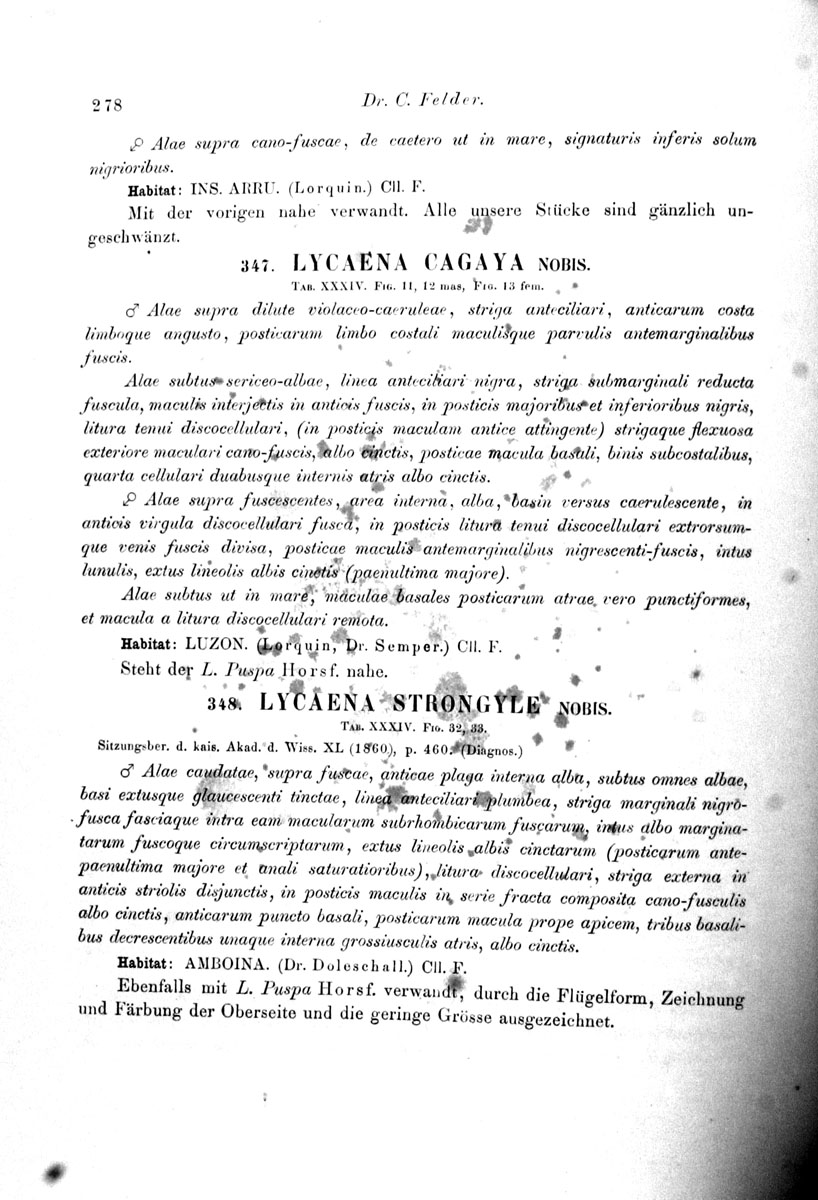 278
Dr. C. Felder.
♀ Alae supra cano-fuscae, de caetero ut in mare, signaturis inferis solum
nigrioribus.
Habitat: INS. ARRU. (Lorquin.) Cll. F.
Mit der vorigen nahe verwandt. Alle unsere Stücke sind gänzlich un-
geschwänzt.
347. LYCAENA CAGAYA NOBIS.
TAB. XXXIV. FIG. 11, 12 mas, FIG. 13 fem.
♂ Alae supra dilute violaceo-caeruleae, striga anteciliari, anticarum costa
limboque angusto, posticarum limbo costali maculisque parvulis antemarginalibus
fuscis.
Alae subtus sericeo-albae, linea anteciliari nigra, striga submarginali reducta
fuscula, maculis interjectis in anticis fuscis, in posticis majoribus et inferioribus nigris,
litura tenui discocellulari, (in posticis maculam antice attingente) strigaque flexuosa
exteriore maculari cano-fuscis, albo cinctis, posticae macula basali, binis subcostalibus,
quarta cellulari duabusque internis atris albo cinctis.
♀ Alae supra fuscescentes, area interna, alba, basin versus caerulescente, in
anticis virgula discocellulari fusca, in posticis litura tenui discocellulari extrorsum-
que venis fuscis divisa, posticae maculis antemarginalibus nigrescenti-fuscis, intus
lunulis, extus lineolis albis cinctis (paenultima majore).
Alae subtus ut in mare, maculae basales posticarum atrae vero punctiformes,
et macula a litura discocellulari remota.
Habitat: LUZON. (Lorquin, Dr. Semper.) Cll. F.
Steht der L. Puspa Horsf. nahe.
348. LYCAENA STRONGYLE NOBIS.
TAB. XXXIV. FIG. 32, 33.
Sitzungsber. d. kais. Akad. d. Wiss. XL (1860), p. 460. (Diagnos.)
♂ Alae caudatae, supra fuscae, anticae plaga interna alba, subtus omnes albae,
basi extusque glaucescenti tinctae, linea anteciliari plumbea, striga marginali nigro-
fusca fasciaque intra eam macularum subrhombicarum fuscarum, intus albo margina-
tarum fuscoque circumscriptarum, extus lineolis albis cinctarum (posticarum ante-
paenultima majore et anali saturatioribus), litura discocellulari, striga externa in
anticis striolis disjunctis, in posticis maculis in serie fracta composita cano-fusculis
albo cinctis, anticarum puncto basali, posticarum macula prope apicem, tribus basali-
bus decrescentibus unaque interna grossiusculis atris, albo cinctis.
Habitat: AMBOINA. (Dr. Doleschall.) Cll. F.
Ebenfalls mit L. Puspa Horsf. verwandt, durch die Flügelform, Zeichnung
und Färbung der Oberseite und die geringe Grösse ausgezeichnet.